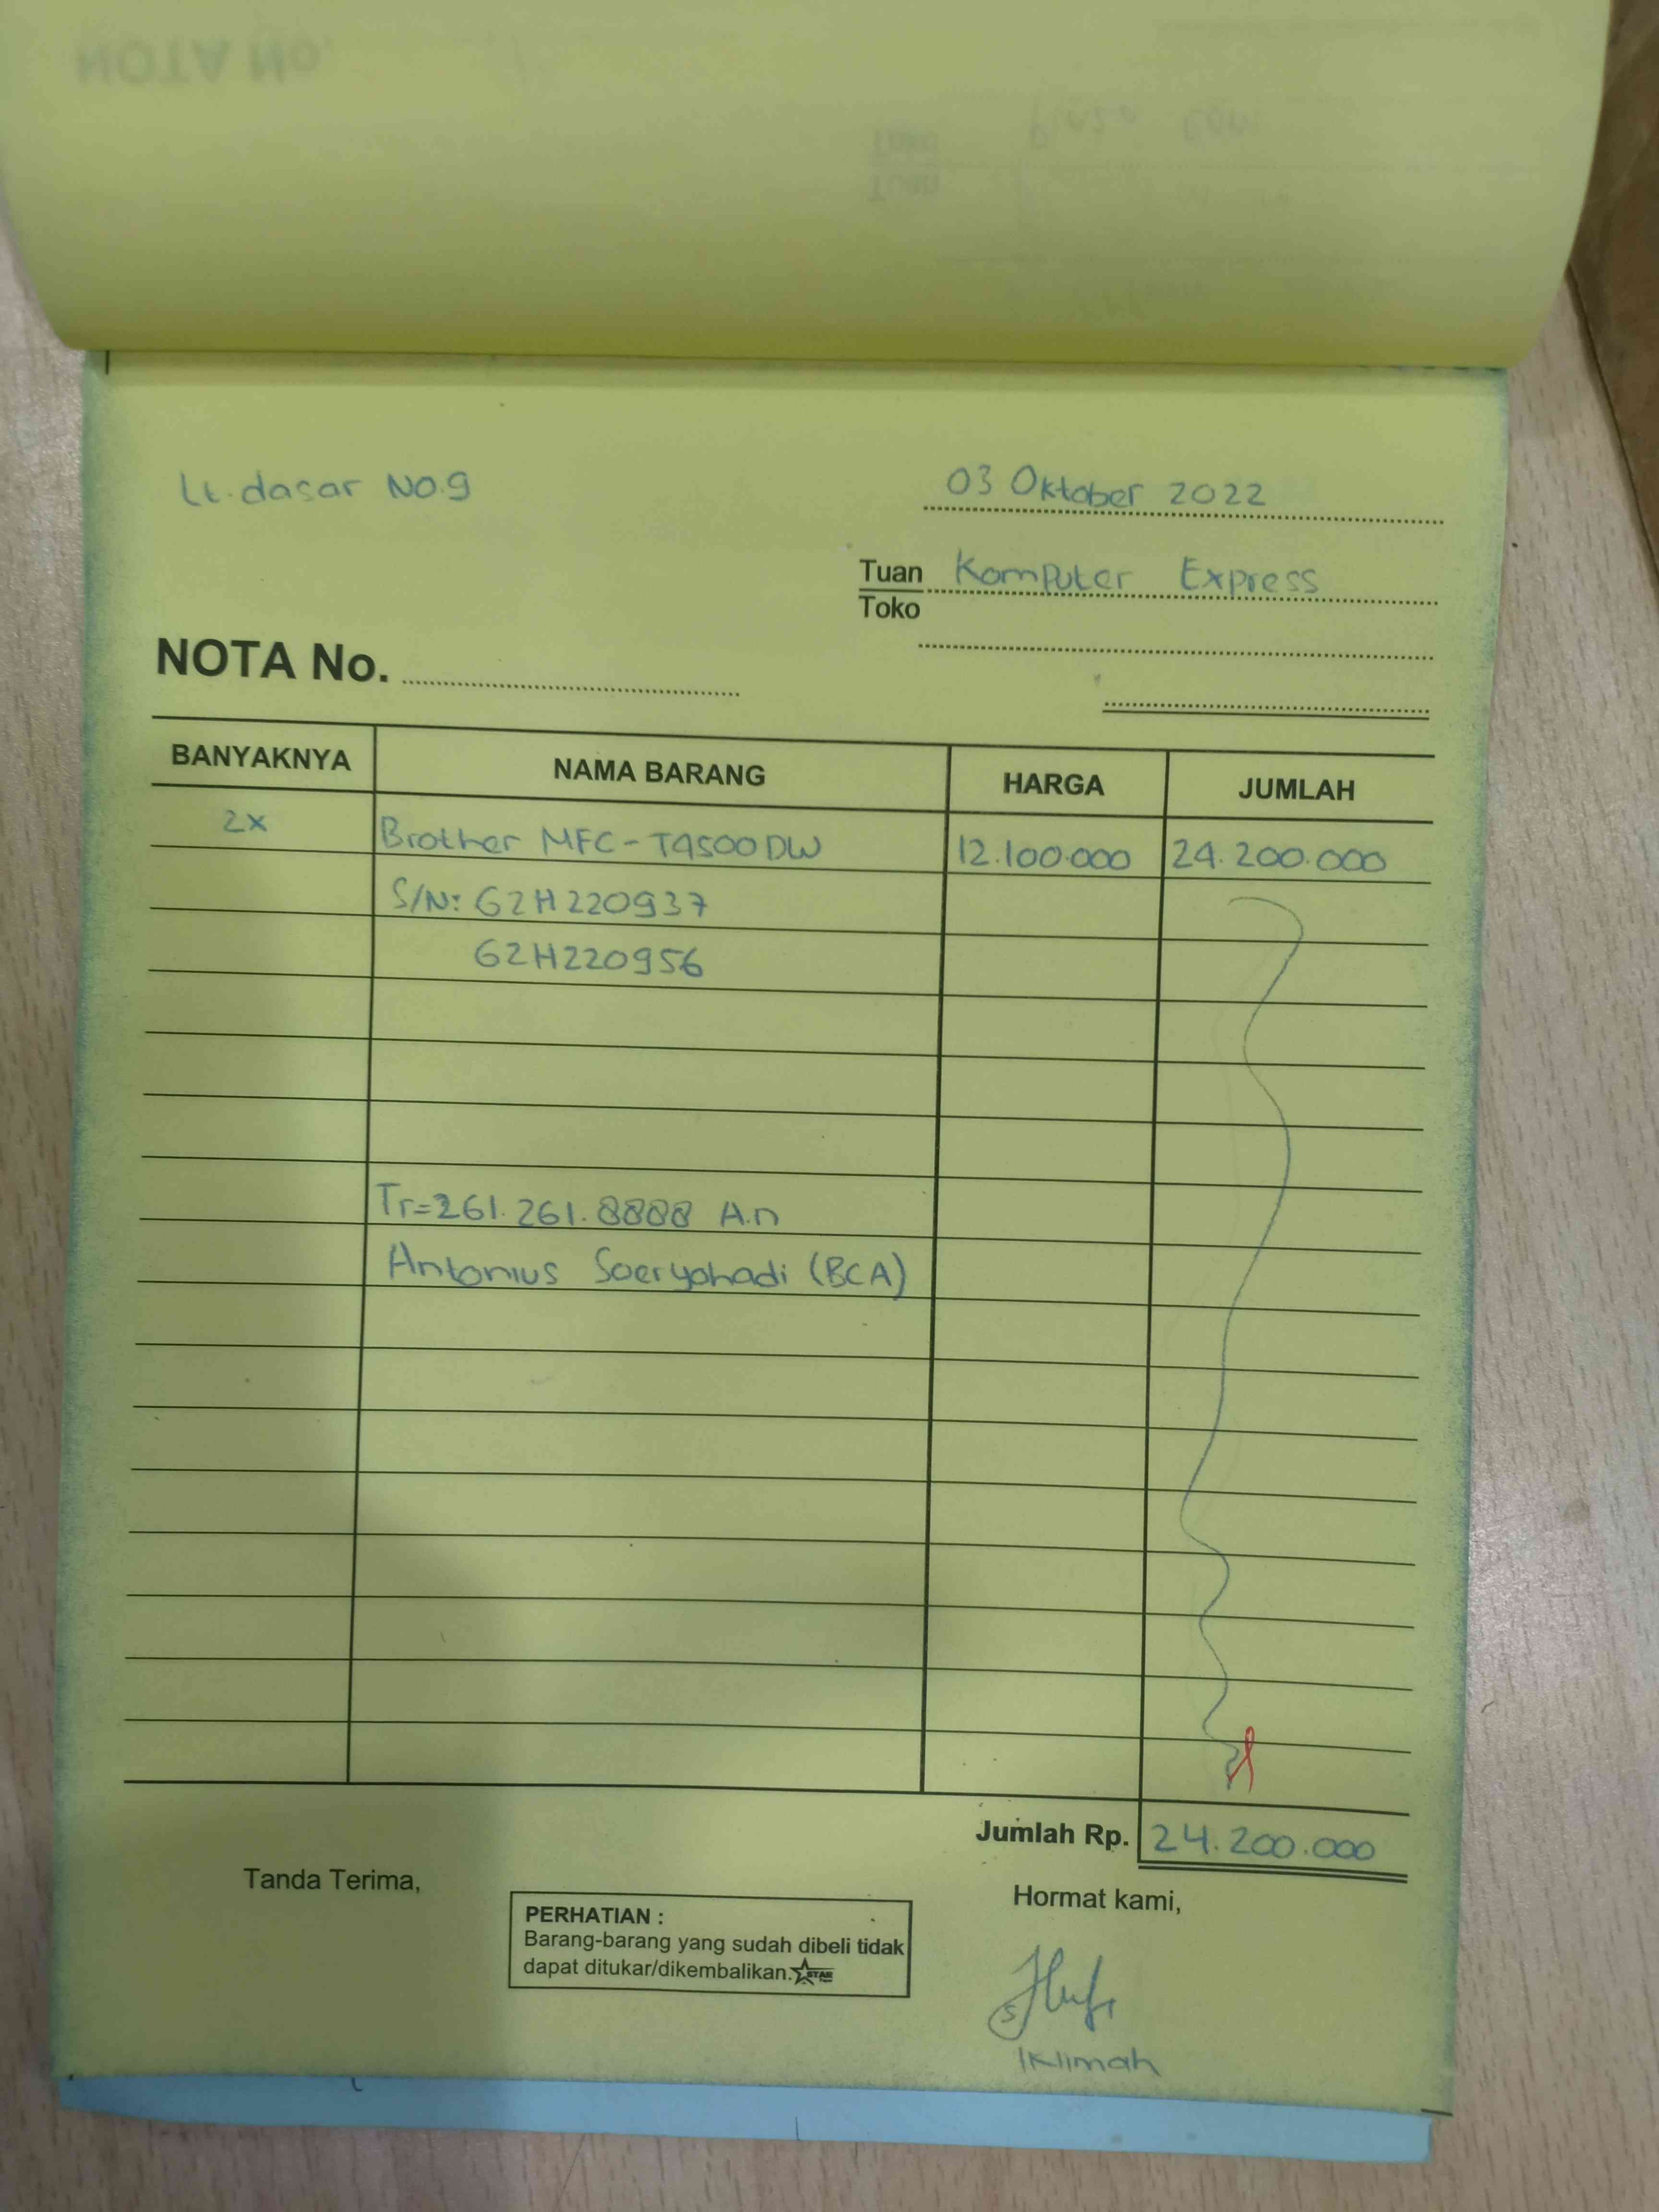 NOTA No.
Lt. dasar No.9
03 Oktober 2022
Tuan Komputer Express
Toko
NOTA No.
BANYAKNYA NAMA BARANG HARGA JUMLAH
2x Brother MFC-T4500DW 12.100.000 24.200.000
S/N: G2H220937
G2H220956
Tr=261.261.8888 A.n
Antonius Soeryohadi (BCA)
Jumlah Rp. 24.200.000
Tanda Terima,
Hormat kami,
PERHATIAN :
Barang-barang yang sudah dibeli tidak
dapat ditukar/dikembalikan. STAR
Iklimah